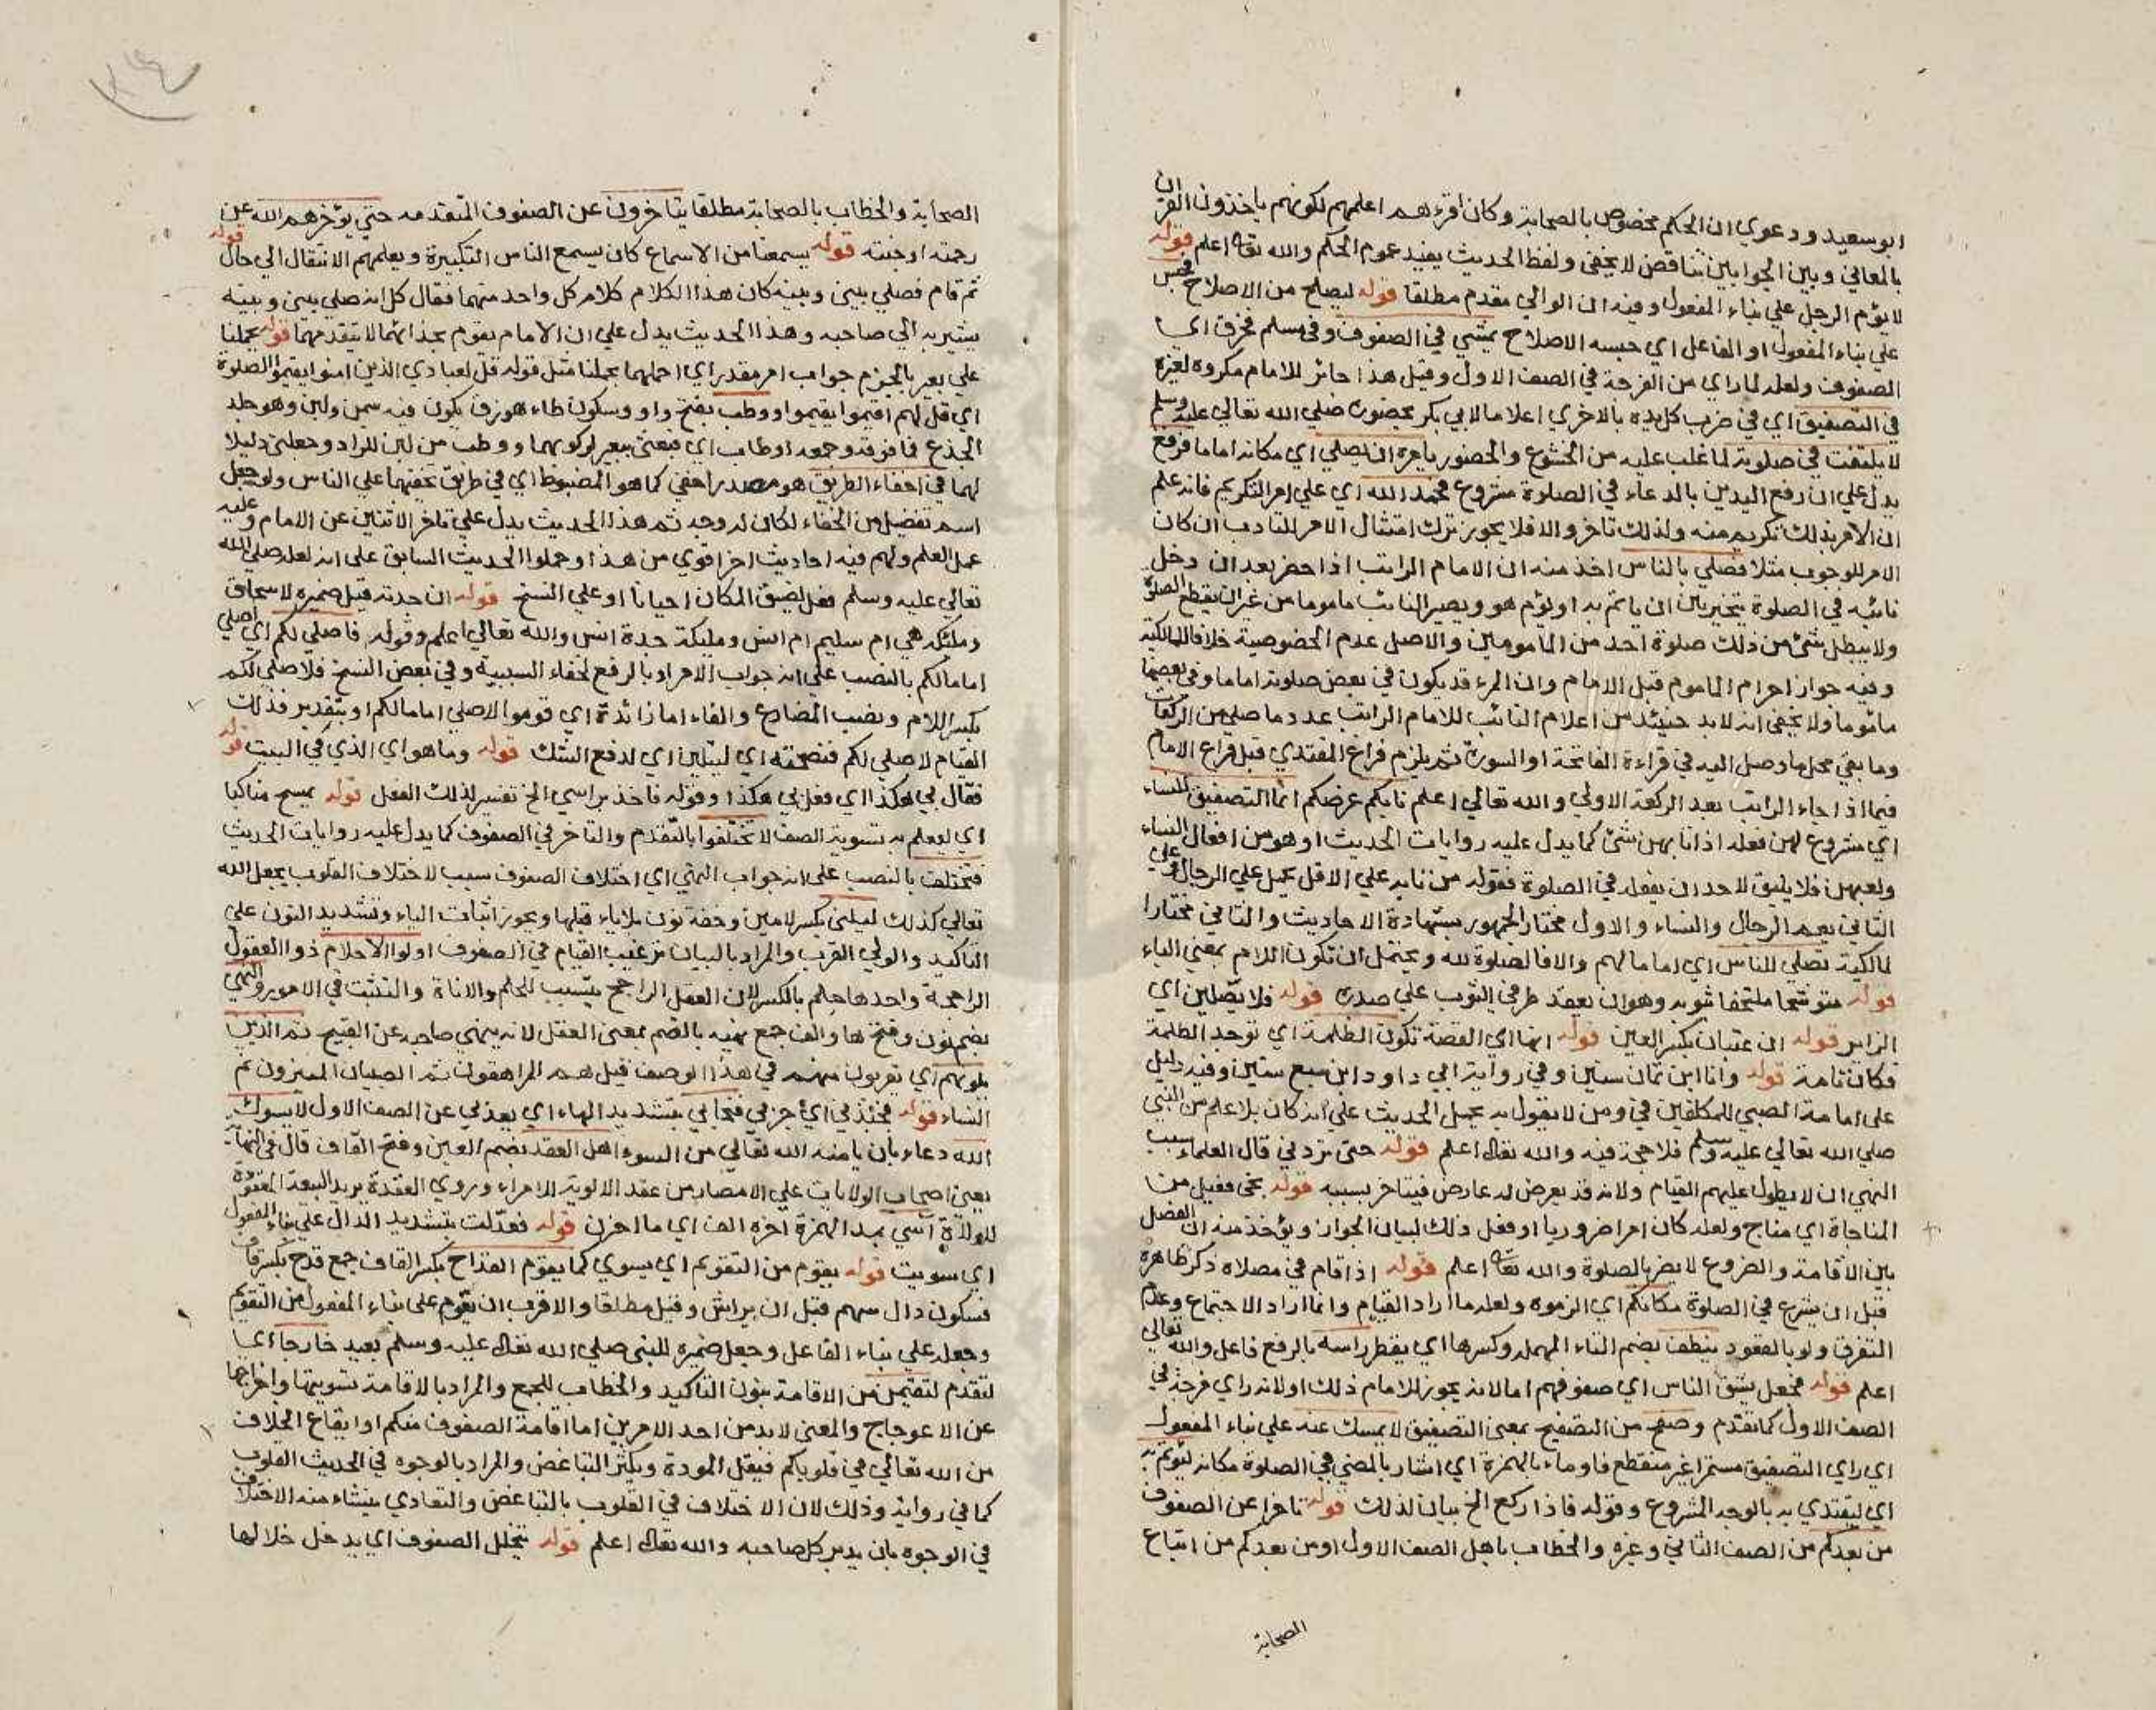 ابو سعيد ودعوي ان الحكم مخصوص بالصحابة وكان اقرءهم اعلمهم لكونهم ياخذون القران
بالمعاني وبين الجوابين تناقض لا يخفى ولفظ الحديث يفيد عموم الحكم والله تعالى اعلم قوله
لا يؤم الرجل علي بناء المفعول وفيه ان الوالي مقدم مطلقا قوله ليصلح من الاصلاح فحبس
علي بناء المفعول او الفاعل اي حبسه الاصلاح يمشي في الصفوف وفي مسلم فخرق اي
الصفوف ولعله لما راي من الفرجة في الصف الاول وقيل هذا جائز للامام مكروه لغيره
في التصفيق اي في ضرب كل يده بالاخري اعلاما لابي بكر بحضوره صلي الله تعالي عليه وسلم
لا يلتفت في صلوته لما غلب عليه من الخشوع والحضور يامره ان يصلي اي مكانه اماما فرفع
يدل علي ان رفع اليدين بالدعاء في الصلوة مشروع فحمد الله اي علي امر التكريم فانه علم
ان الامر بذلك تكريم منه ولذلك تاخر والا فلا يجوز ترك امتثال الامر للتادب ان كان
الامر للوجوب مثلا فصلي بالناس اخذ منه ان الامام الراتب اذا حضر بعد ان دخل
نائبه في الصلوة يتخير بين ان ياتم به او يؤم هو ويصير النائب ماموما من غير ان يقطع الصلوة
ولا يبطل شئ من ذلك صلوة احد من المامومين والاصل عدم الخصوصية خلافا للمالكية
وفيه جواز احرام الماموم قبل الامام وان المرء قد يكون في بعض صلوته اماما وفي بعضها
ماموما ولا يخفى انه لا بد حينئذ من اعلام النائب للامام الراتب عدد ما صلي من الركعات
وما بقي محل ما وصل اليه في قراءة الفاتحة او السورة ثم يلزم فراغ المقتدي قبل فراغ الامام
فيما اذا جاء الراتب بعد الركعة الاولي والله تعالي اعلم نابكم عرضكم انما التصفيق للنساء
اي مشروع لهن فعله اذا نابهن شئ كما يدل عليه روايات الحديث او هو من افعال النساء
ولعبهن فلا يليق لاحد ان يفعله في الصلوة فقوله من نابه علي الاول يحمل علي الرجال وعلي
الثاني يعم الرجال والنساء والاول مختار الجمهور بشهادة الاحاديث والثاني مختار
المالكية تصلي للناس اي اماما لهم والا فالصلوة لله ويحتمل ان تكون اللام بمعني الباء
قوله متوشحا ملتحفا ثوبه وهو ان يعقد طرفي الثوب علي صدره قوله فلا يصلين اي
الزاير قوله ان عتبان بكسر العين قوله انها اي القصة تكون الظلمة اي توجد الظلمة
فكان تامة قوله وانا ابن ثمان سنين وفي رواية ابي داود ابن سبع سنين وفيه دليل
علي امامة الصبي للمكلفين في ومن لا يقول به يحمل الحديث علي انه كان بلا علم من النبي
صلي الله تعالي عليه وسلم فلا حجة فيه والله تعالى اعلم قوله حتى تروني قال العلماء سبب
النهي ان لا يطول عليهم القيام ولانه قد يعرض له عارض فيتاخر بسببه قوله نجي فعيل من
المناجاة اي مناج ولعله كان امرا ضروريا او فعل ذلك لبيان الجواز ويؤخذ منه ان الفصل
بين الاقامة والشروع لا يضر بالصلوة والله تعالى اعلم قوله اذا قام في مصلاه ذكر ظاهره
قبل ان يشرع في الصلوة مكانكم اي الزموه ولعله ما اراد القيام وانما اراد الاجتماع وعدم
التفرق ولو بالقعود ينطف بضم الطاء المهملة وكسرها اي يقطر راسه بالرفع فاعل والله تعالي
اعلم قوله فجعل يشق الناس اي صفوفهم اما لانه يجوز للامام ذلك او لانه راي فرجة في
الصف الاول كما تقدم وصفح من التصفيح بمعنى التصفيق لا يمسك عنه علي بناء المفعول
اي راي التصفيق مستمرا غير منقطع فاوماء بالهمزة اي اشار بالمضي في الصلوة مكانه ليؤتم به
اي ليقتدي به بالوجه المشروع وقوله فاذا ركع الخ بيان لذلك قوله تاخرا عن الصفوف
من بعدكم من الصف الثاني وغيره والخطاب باهل الصف الاول او من بعدكم من اتباع
الصحابة
الصحابة والخطاب بالصحابة مطلقا يتاخرون عن الصفوف المتقدمة حتي يؤخرهم الله عن
رحمته او جنته قوله يسمعنا من الاسماع كان يسمع الناس التكبيرة ويعلمهم الانتقال الي حال قوله
ثم قام فصلي بيني وبينه كان هذا الكلام كلام كل واحد منهما فقال كل انه صلي بيني وبينه
يشير به الي صاحبه وهذا الحديث يدل علي ان الامام يقوم بحذائهما لا يتقدمهما قوله يحملنا
علي بعير بالجزم جواب امر مقدر اي احملهما يحملنا مثل قوله قل لعبادي الذين امنوا يقيموا الصلوة
اي قل لهم اقيموا يقيموا ووطب بفتح واو وسكون طاء هو زق يكون فيه سمن ولبن وهو جلد
الجذع فما فوقه وجمعه اوطاب اي فبعثني ببعير لركوبهما ووطب من لبن للزاد وجعلني دليلا
لهما في اخفاء الطريق هو مصدر اخفي كما هو المضبوط اي في طريق تخفيها علي الناس ولو جعل
اسم تفضيل من الخفاء لكان له وجه ثم هذا الحديث يدل علي تاخر الاثنين عن الامام وعليه
عمل العلم ولهم فيه احاديث اخر اقوي من هذا وحملوا الحديث السابق على انه لعله صلي الله
تعالي عليه وسلم فعل لضيق المكان احيانا او علي النسخ قوله ان جدته قيل ضميره لاسحاق
ومليكه هي ام سليم ام انس ومليكة جدة انس والله تعالي اعلم وقوله فاصلي لكم اي اصلي
اماما لكم بالنصب علي انه جواب الامر او بالرفع لخفاء السببية وفي بعض النسخ فلاصلي لكم
بكسر اللام ونصب المضارع والفاء اما زائدة اي قوموا لاصلي اماما لكم او بتقدير فذلك
القيام لاصلي لكم فنضحته اي ليلين اي لدفع الشك قوله وما هو اي الذي في البيت قوله
فقال بي هكذا اي فعل بي هكذا وقوله فاخذ براسي الخ تفسير لذلك الفعل قوله يمسح مناكبنا
اي ليعلم به تسوية الصف لا تختلفوا بالتقدم والتاخر في الصفوف كما يدل عليه روايات الحديث
فتختلف بالنصب على انه جواب النهي اي اختلاف الصفوف سبب لاختلاف القلوب بجعل الله
تعالي كذلك ليليني بكسر لامين وخفة نون بلا ياء قبلها ويجوز اثبات الياء وتشديد النون علي
التاكيد والولي القرب والمراد بالبيان ترغيب القيام في الصفوف اولوا الاحلام ذووا العقول
الراجحة واحدها حلم بالكسر لان العقل الراجح يتسبب للحلم والاناة والتثبت في الامور والنهي
بضم نون وفتح هاء والف جمع نهيه بالضم بمعنى العقل لانه ينهي صاحبه عن القبيح ثم الذين
يلونهم اي يقربون منهم في هذا الوصف قيل هم المراهقون ثم الصبيان المميزون ثم
النساء قوله فجبذني اي جرني فنحاني بتشديد الهاء اي بعدني عن الصف الاول لا يسوك
الله دعاء بان يامنه الله تعالي من السوء اهل العقد بضم العين وفتح القاف قال في النهاية
يعني اصحاب الولايات علي الامصار من عقد الالوية للامراء وروي العقدة يريد البيعة المعقودة
للولاة آسي بمد الهمزة اخره الف اي ما احزن قوله فعدلت بتشديد الدال علي بناء المفعول
اي سويت قوله يقوم من التقويم اي يسوي كما يقوم القداح بكسر القاف جمع قدح بكسر قاف
فسكون دال سهم قبل ان يراش وقيل مطلقا والاقرب ان يقوم على بناء المفعول من التقويم
وجعله علي بناء الفاعل وجعل ضميره للنبي صلي الله تعالى عليه وسلم بعيد خارجا اي
لتقدم لتقيمن من الاقامة بنون التاكيد والخطاب للجمع والمراد بالاقامة تسويتها واخراجها
عن الاعوجاج والمعني لا بد من احد الامرين اما اقامة الصفوف منكم او ايقاع الخلاف
من الله تعالي في قلوبكم فيقل المودة ويكثر التباغض والمراد بالوجوه في الحديث القلوب
كما في رواية وذلك لان الاختلاف في القلوب بالتباغض والتعادي ينشاء منه الاختلاف
في الوجوه بان يدبر كل صاحبه والله تعالى اعلم قوله يتخلل الصفوف اي يدخل خلالها